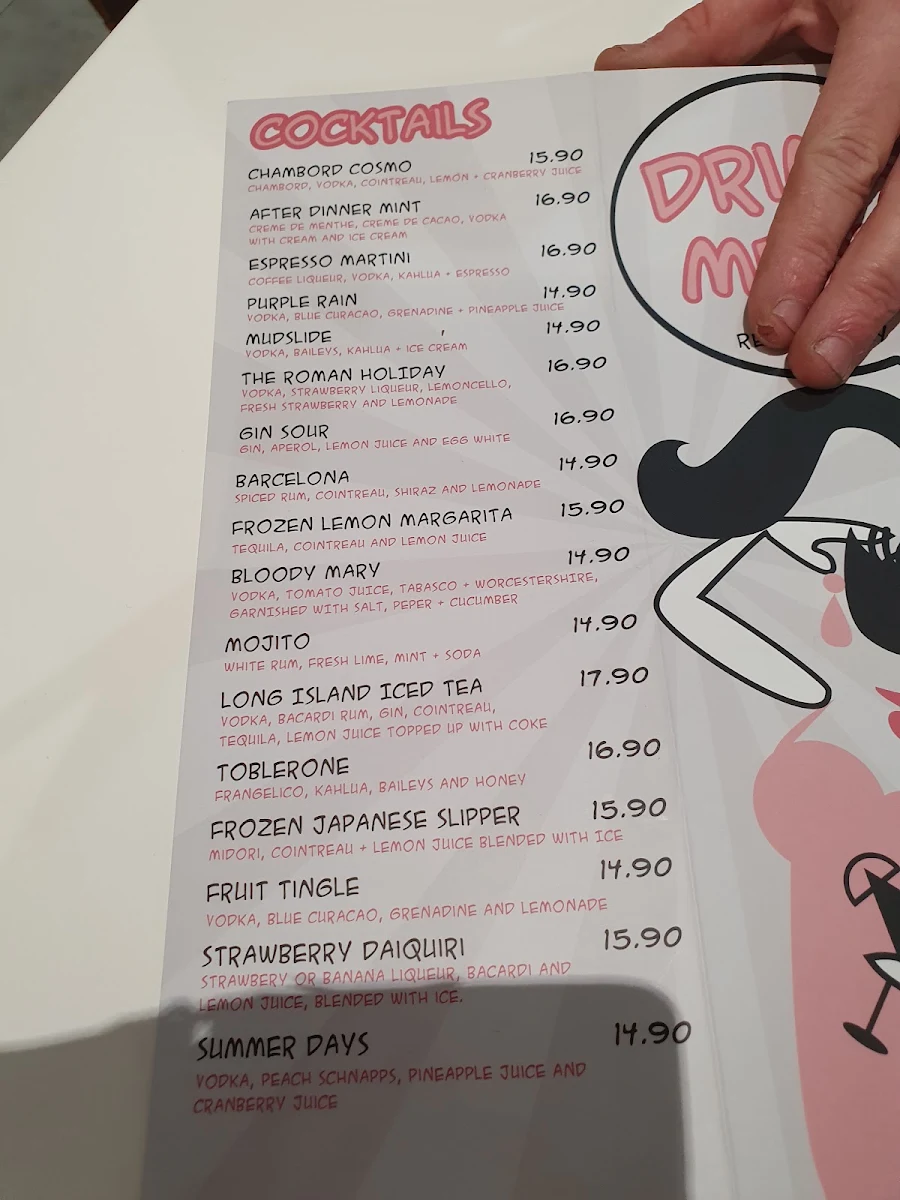 COCKTAILS
CHAMBORD COSMO 15.90
CHAMBORD, VODKA, COINTREAU, LEMON + CRANBERRY JUICE
AFTER DINNER MINT 16.90
CREME DE MENTHE, CREME DE CACAO, VODKA
WITH CREAM AND ICE CREAM
ESPRESSO MARTINI 16.90
COFFEE LIQUEUR, VODKA, KAHLUA + ESPRESSO
PURPLE RAIN 14.90
VODKA, BLUE CURACAO, GRENADINE + PINEAPPLE JUICE
MUDSLIDE 14.90
VODKA, BAILEYS, KAHLUA + ICE CREAM
THE ROMAN HOLIDAY 16.90
VODKA, STRAWBERRY LIQUEUR, LEMONCELLO,
FRESH STRAWBERRY AND LEMONADE
GIN SOUR 16.90
GIN, APEROL, LEMON JUICE AND EGG WHITE
BARCELONA 14.90
SPICED RUM, COINTREAU, SHIRAZ AND LEMONADE
FROZEN LEMON MARGARITA 15.90
TEQUILA, COINTREAU AND LEMON JUICE
BLOODY MARY 14.90
VODKA, TOMATO JUICE, TABASCO + WORCESTERSHIRE,
GARNISHED WITH SALT, PEPER + CUCUMBER
MOJITO 14.90
WHITE RUM, FRESH LIME, MINT + SODA
LONG ISLAND ICED TEA 17.90
VODKA, BACARDI RUM, GIN, COINTREAU,
TEQUILA, LEMON JUICE TOPPED UP WITH COKE
TOBLERONE 16.90
FRANGELICO, KAHLUA, BAILEYS AND HONEY
FROZEN JAPANESE SLIPPER 15.90
MIDORI, COINTREAU + LEMON JUICE BLENDED WITH ICE
FRUIT TINGLE 14.90
VODKA, BLUE CURACAO, GRENADINE AND LEMONADE
STRAWBERRY DAIQUIRI 15.90
STRAWBERY OR BANANA LIQUEUR, BACARDI AND
LEMON JUICE, BLENDED WITH ICE.
SUMMER DAYS 14.90
VODKA, PEACH SCHNAPPS, PINEAPPLE JUICE AND
CRANBERRY JUICE